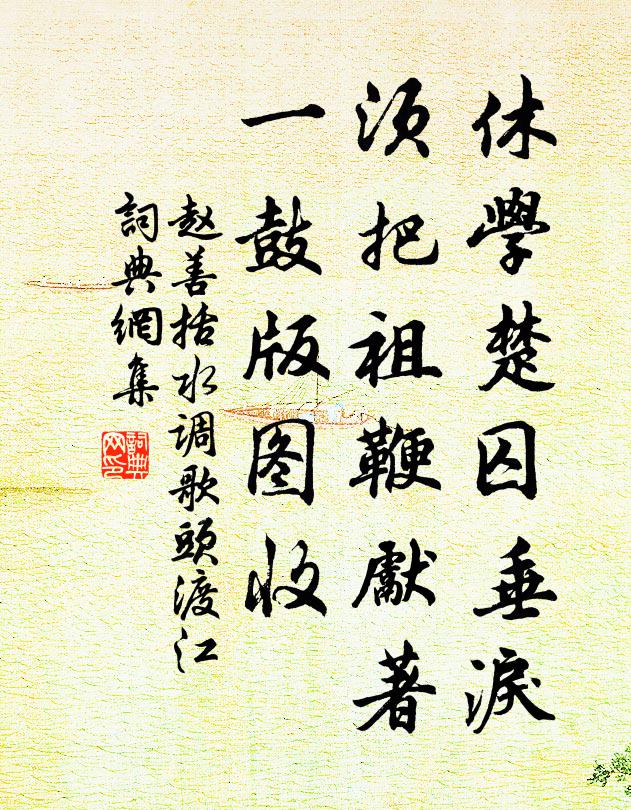 休學楚囚垂淚
须把祖鞭獻著
一鼓版图收
赵善括水调歌頭渡江
詞典網集
詞典网印